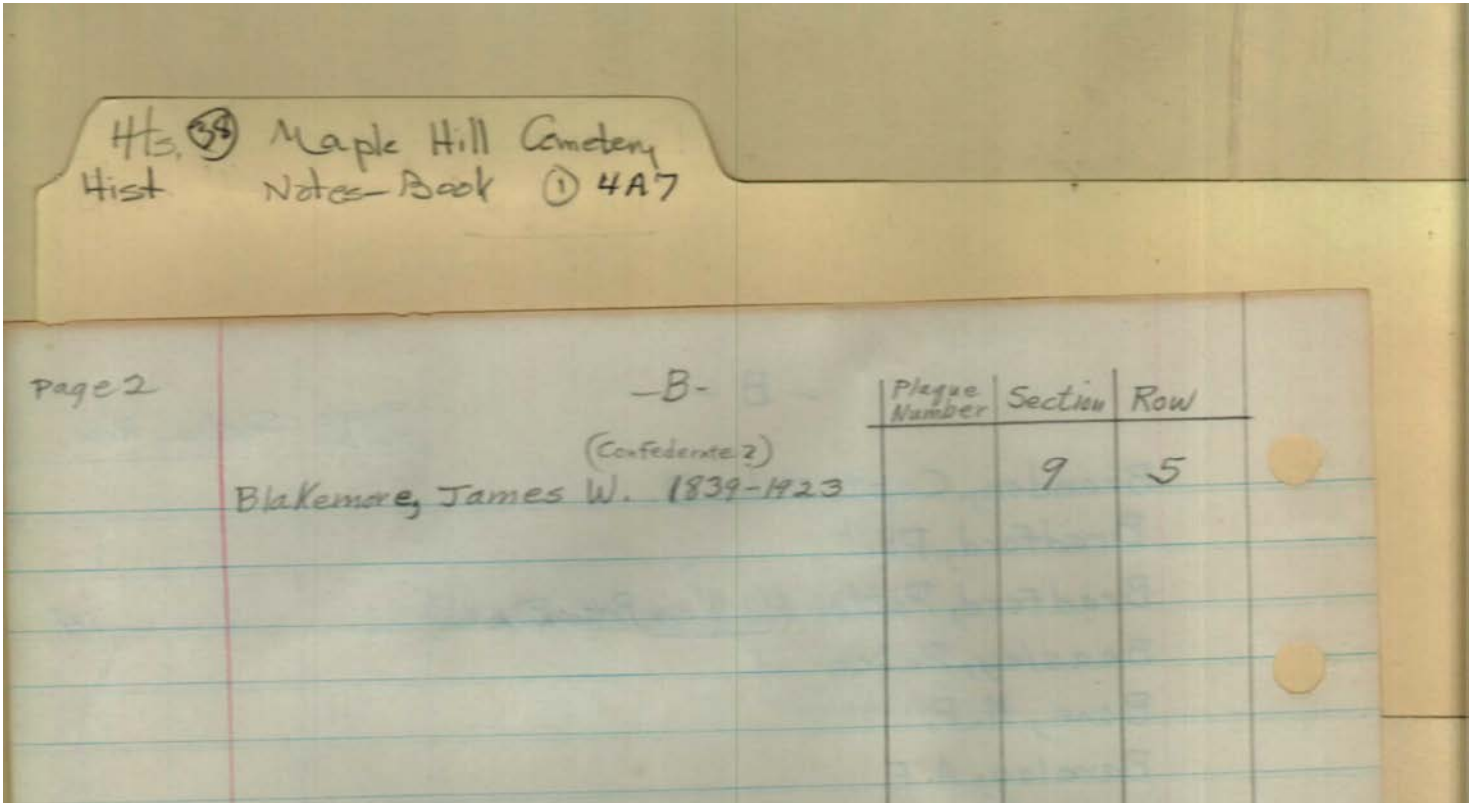 Hts. 38 Maple Hill Cemetery
Hist Notes-Book 1 4A7
Page 2
-B-
Plaque Number Section Row
(Confederate?)
Blakemore, James W. 1839-1923 9 5